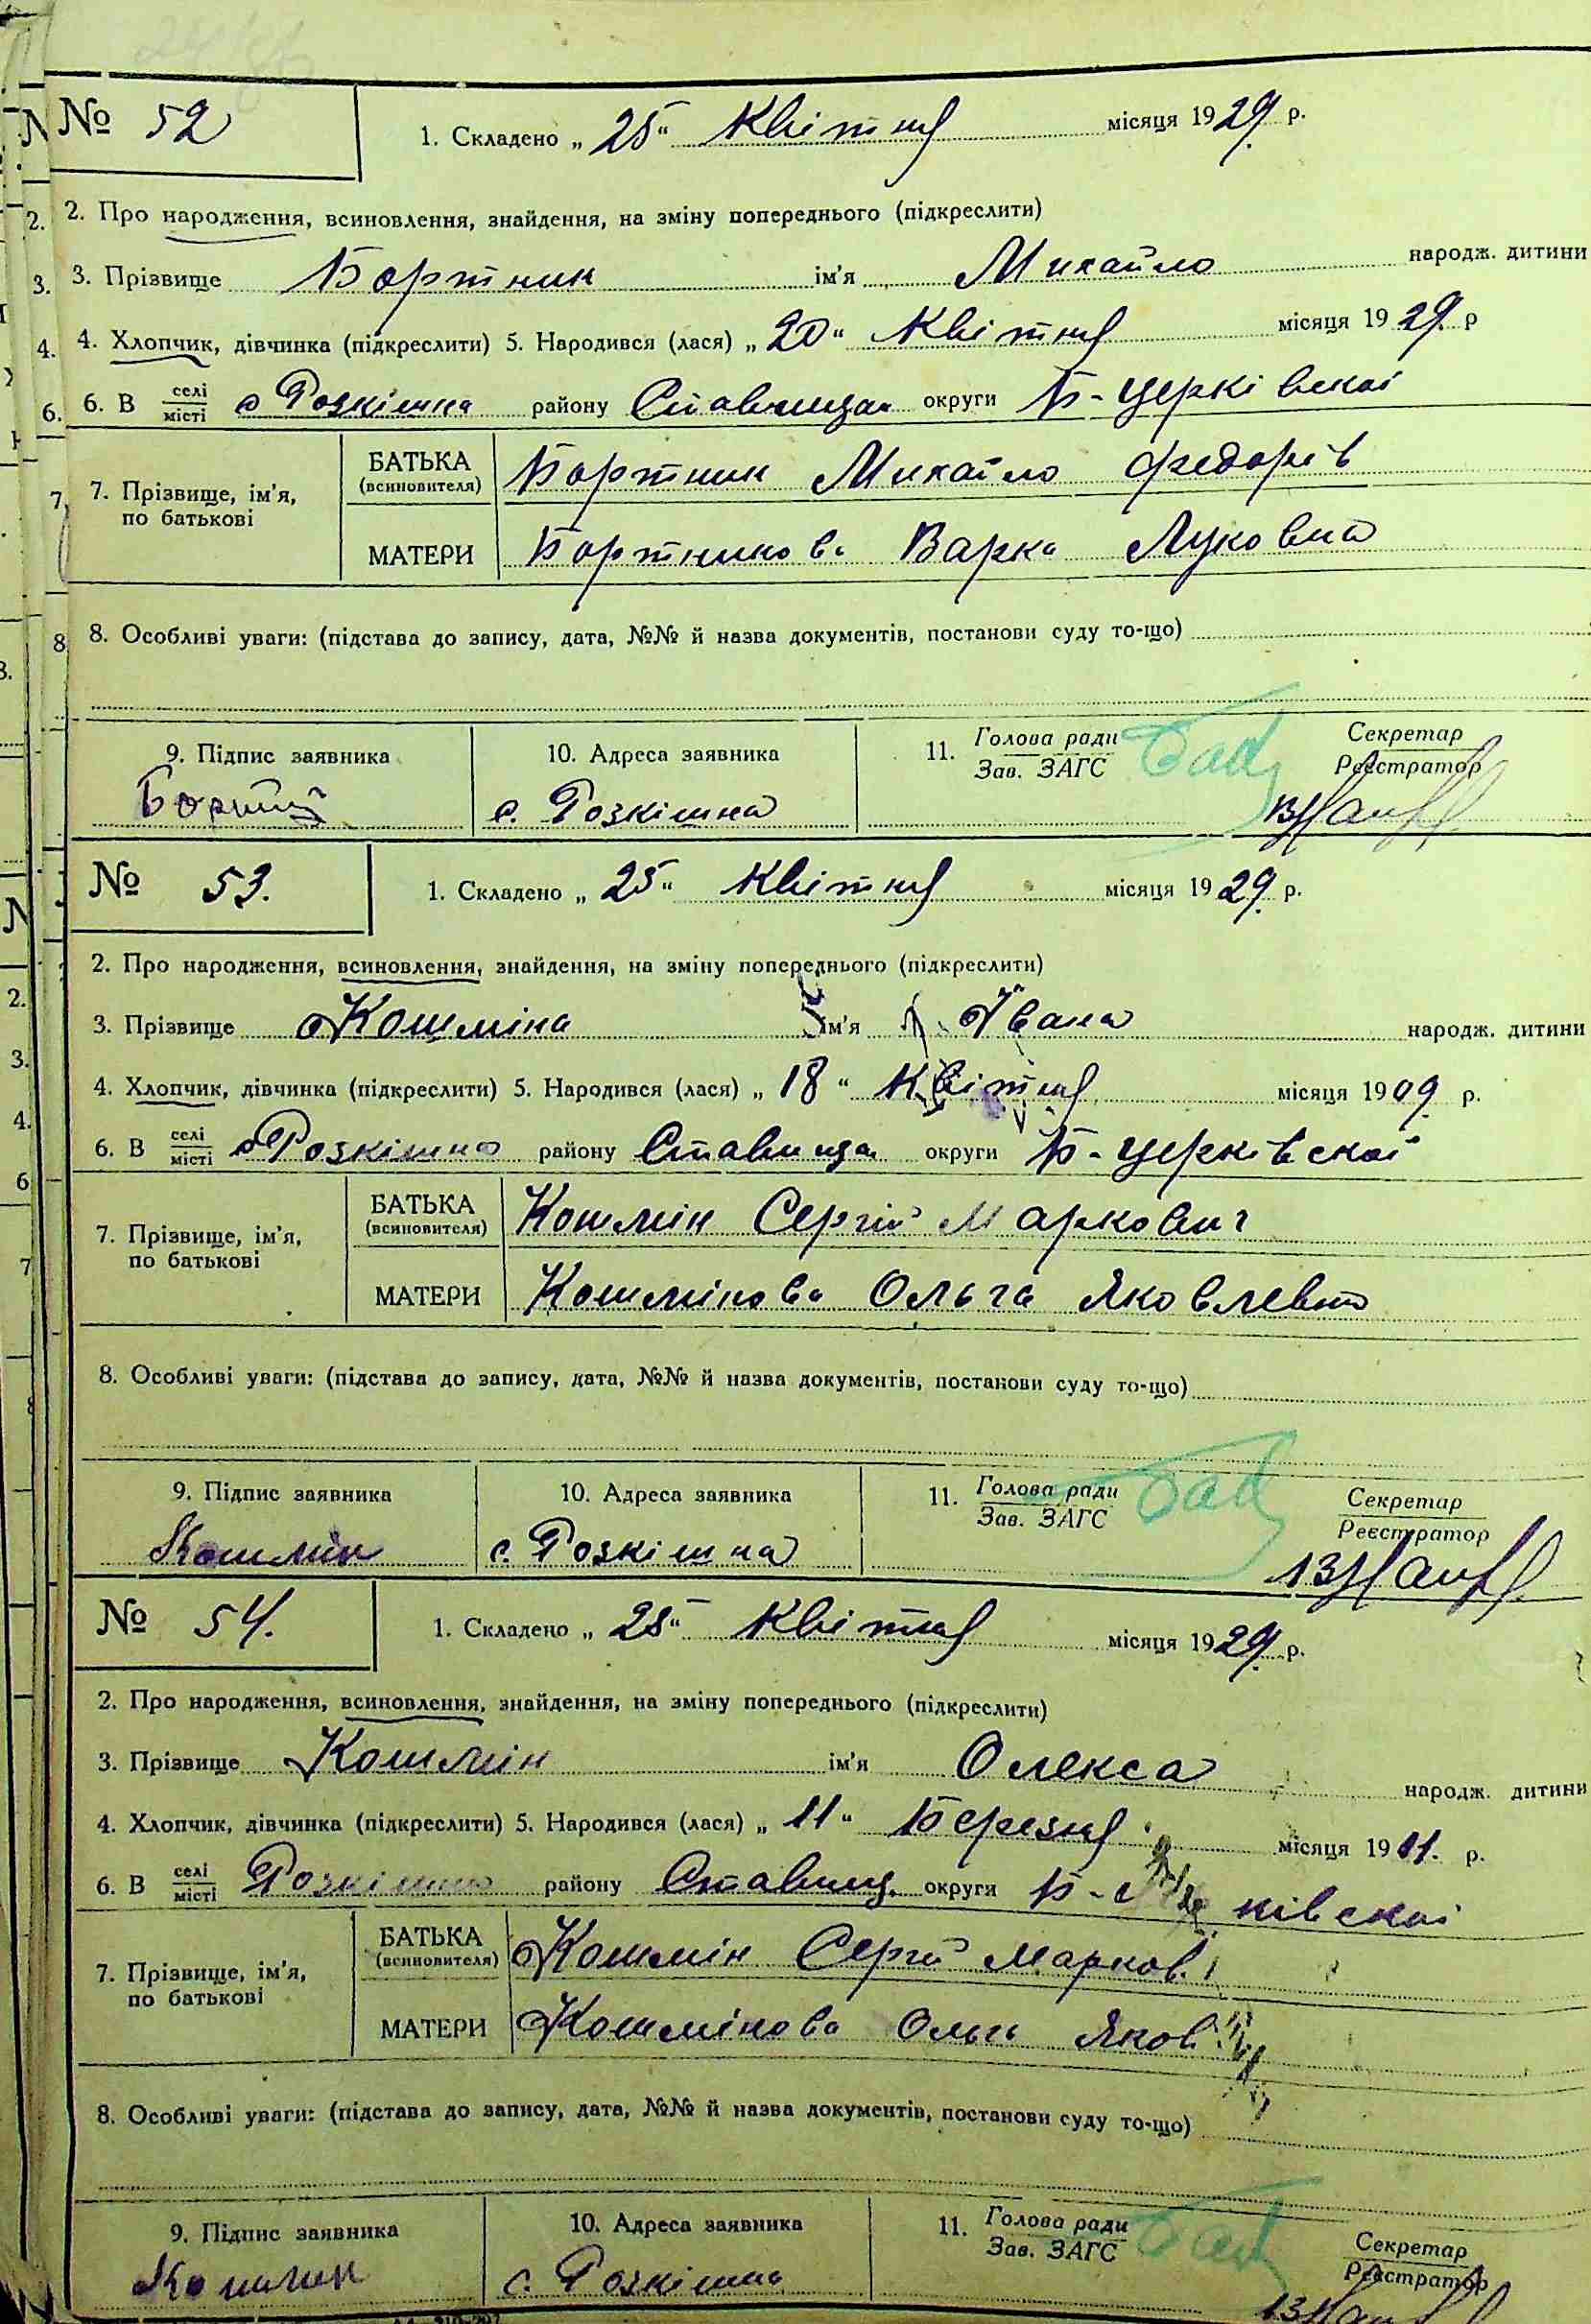 № 52
1. Складено „ 25 “ Квітня місяця 1929. р.
2. Про народження, всиновлення, знайдення, на зміну попереднього (підкреслити)
3. Прізвище Бортник ім’я Михайло народж. дитини
4. Хлопчик, дівчинка (підкреслити) 5. Народився (лася) „ 20 “ Квітня місяця 1929. р
6. В селі/місті с Розкішна району Ставища. округи Б-Церківскої
7. Прізвище, ім’я, по батькові
БАТЬКА (всиновителя) Бортник Михайло Федорів
МАТЕРИ Бортникова Варка Луковна
8. Особливі уваги: (підстава до запису, дата, №№ й назва документів, постанови суду то-що)
9. Підпис заявника
10. Адреса заявника
11. Голова ради / Зав. ЗАГС
Секретар / Реєстратор
с. Розкішна
№ 53.
1. Складено „ 25 “ Квітня місяця 1929. р.
2. Про народження, всиновлення, знайдення, на зміну попереднього (підкреслити)
3. Прізвище Кошміна ім’я Івана народж. дитини
4. Хлопчик, дівчинка (підкреслити) 5. Народився (лася) „ 18 “ Квітня місяця 1909. р.
6. В селі/місті с Розкішна району Ставища. округи Б-Церківскої
7. Прізвище, ім’я, по батькові
БАТЬКА (всиновителя) Кошмін Сергій Маркович
МАТЕРИ Кошмінова Ольга Яковлевна
8. Особливі уваги: (підстава до запису, дата, №№ й назва документів, постанови суду то-що)
9. Підпис заявника
10. Адреса заявника
11. Голова ради / Зав. ЗАГС
Секретар / Реєстратор
Кошмін с. Розкішна
№ 54.
1. Складено „ 25 “ Квітня місяця 1929. р.
2. Про народження, всиновлення, знайдення, на зміну попереднього (підкреслити)
3. Прізвище Кошмін ім’я Олекса народж. дитини
4. Хлопчик, дівчинка (підкреслити) 5. Народився (лася) „ 11 “ Березня місяця 1911. р.
6. В селі/місті Розкішна району Ставищ. округи
7. Прізвище, ім’я, по батькові
БАТЬКА (всиновителя) Кошмін Сергій Марков.
МАТЕРИ Кошмінова Ольга Яков
8. Особливі уваги: (підстава до запису, дата, №№ й назва документів, постанови суду то-що)
9. Підпис заявника
10. Адреса заявника
11. Голова ради / Зав. ЗАГС
Секретар / Реєстратор
Кошмин с. Розкішна